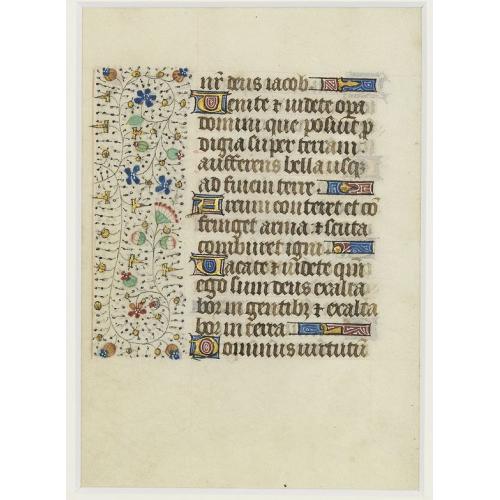 nr̄ deus iacob
Uenite & uidete opa
domini que posuit p
digia super terram
aufferens bella usq;
ad finem terre
Arcum conteret et cō
fringet arma & scuta
comburet igni
Uacate & uidete qm̄
ego sum deus exalta
bor in gentibꝫ & exalta
bor in terra
Dominus uirtutū